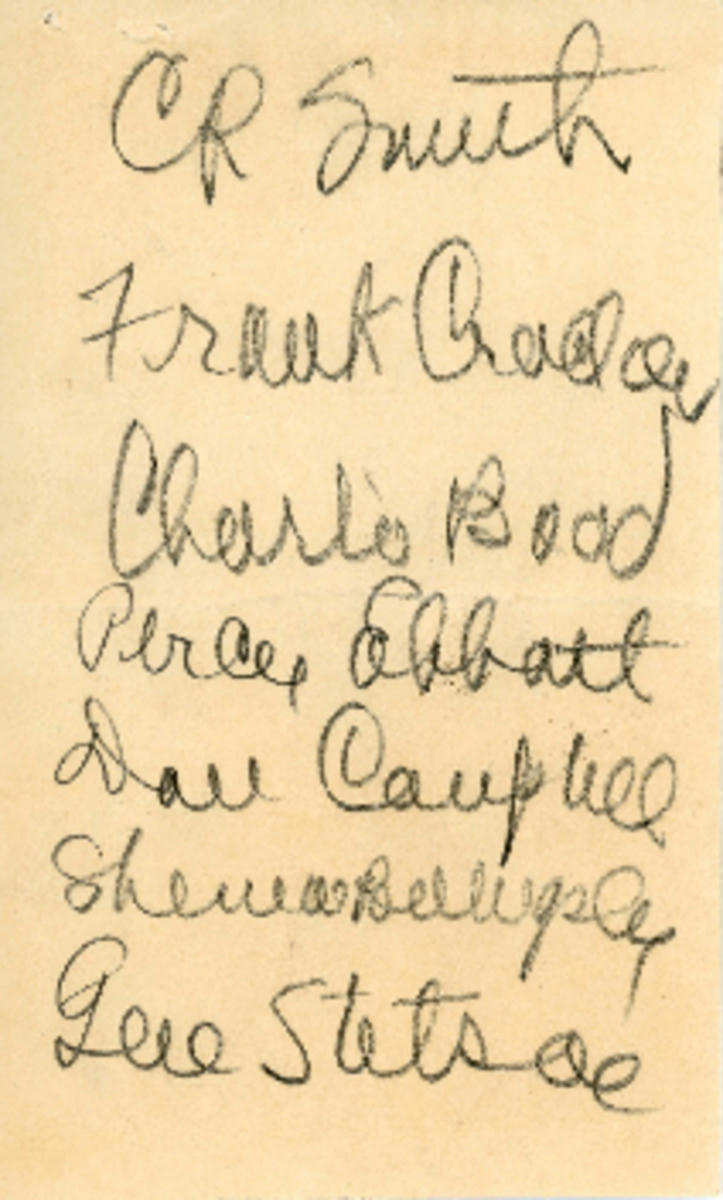 CR Smith
Frank Craddoe
Charlie Bood
Percy Ebbatt
Dan Campbell
Sherman Billingsley
Gene Stetson